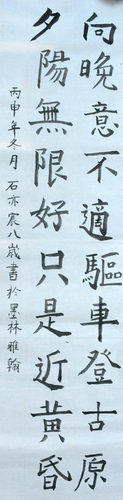 向晚意不適驅車登古原
夕陽無限好只是近黃昏
丙申年冬月石亦宸八歲書於墨林雅翰